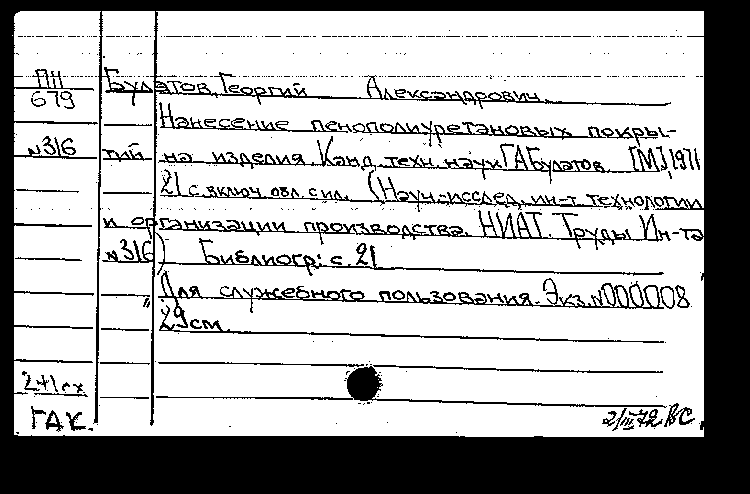 ПН
679
№316
Булатов, Георгий Александрович.
Нанесение пенополиуретановых покры-
тий на изделия. Канд. техн. наук Г.А.Булатов. [М.],1971
21 с. включ. обл. сил. (Науч.-исслед. ин-т технологии
и организации производства. НИАТ. Труды Ин-та
№316) Библиогр: с. 21
"Для служебного пользования. Экз.№000008
29см.
2+1сх
ГАК.
2/III 72 ВС